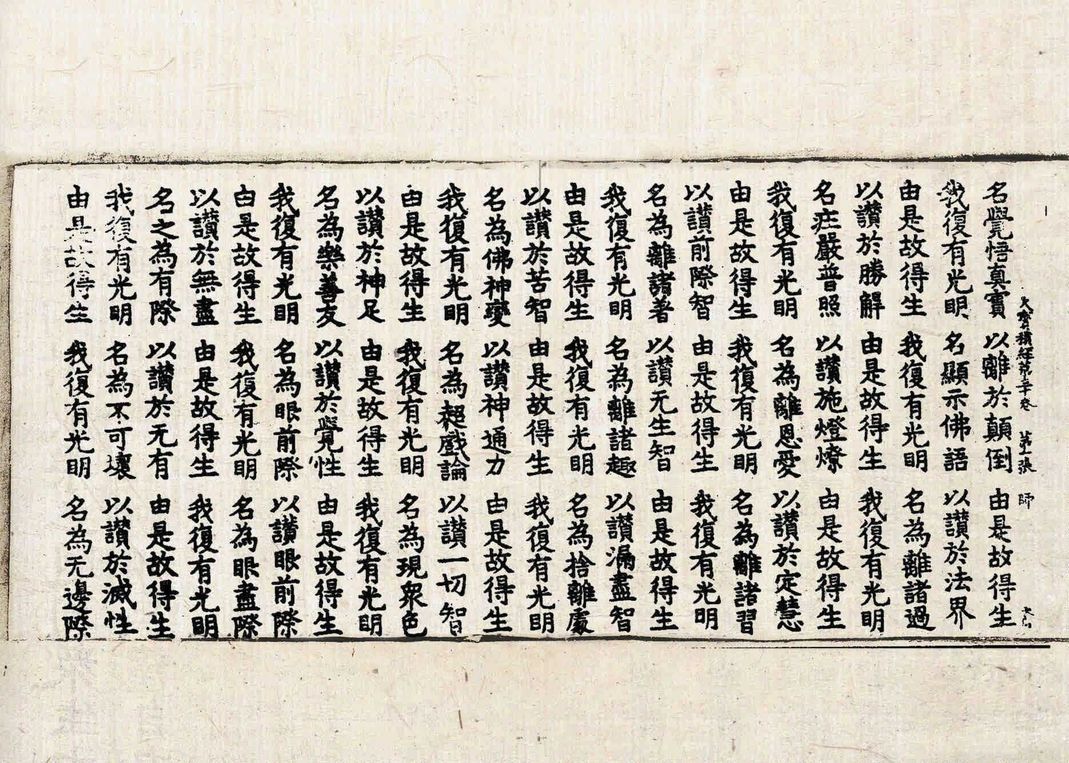 大寶積經第 卷 第 張 師
名覺悟真實 以離於顛倒 由是故得生
我復有光明 名顯示佛語 以讚於法界
由是故得生 我復有光明 名為離諸過
以讚於勝解 由是故得生 我復有光明
名庄嚴普照 以讚施燈燎 由是故得生
我復有光明 名為離恩愛 以讚於定慧
由是故得生 我復有光明 名為離諸習
以讚前際智 由是故得生 我復有光明
名為離諸著 以讚无生智 由是故得生
我復有光明 名為離諸趣 以讚漏盡智
由是故得生 我復有光明 名為捨離處
以讚於苦智 由是故得生 我復有光明
名為佛神變 以讚神通力 由是故得生
我復有光明 名為超戲論 以讚一切智
由是故得生 我復有光明 名為現衆色
以讚於神足 由是故得生 我復有光明
名為樂善友 以讚於覺性 由是故得生
我復有光明 名為眼前際 以讚眼前際
由是故得生 我復有光明 名為眼盡際
以讚於無盡 由是故得生 我復有光明
名之為有際 以讚於无有 由是故得生
我復有光明 名為不可壞 以讚於滅性
由是故得生 我復有光明 名為无邊際